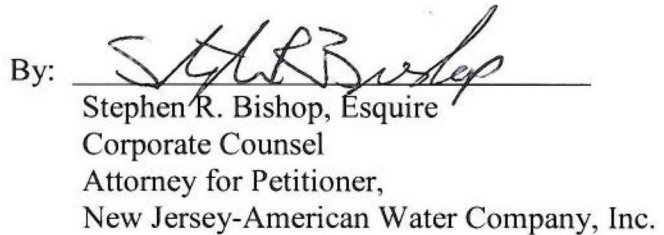 By: Stephen R Bishop
Stephen R. Bishop, Esquire
Corporate Counsel
Attorney for Petitioner,
New Jersey-American Water Company, Inc.